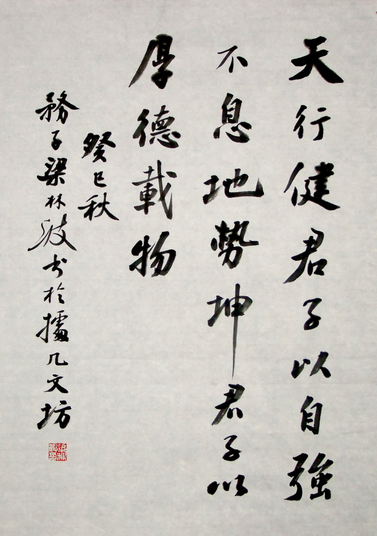 天行健君子以自強
不息地勢坤君子以
厚德載物
癸巳秋
務子梁林波书於擂几文坊